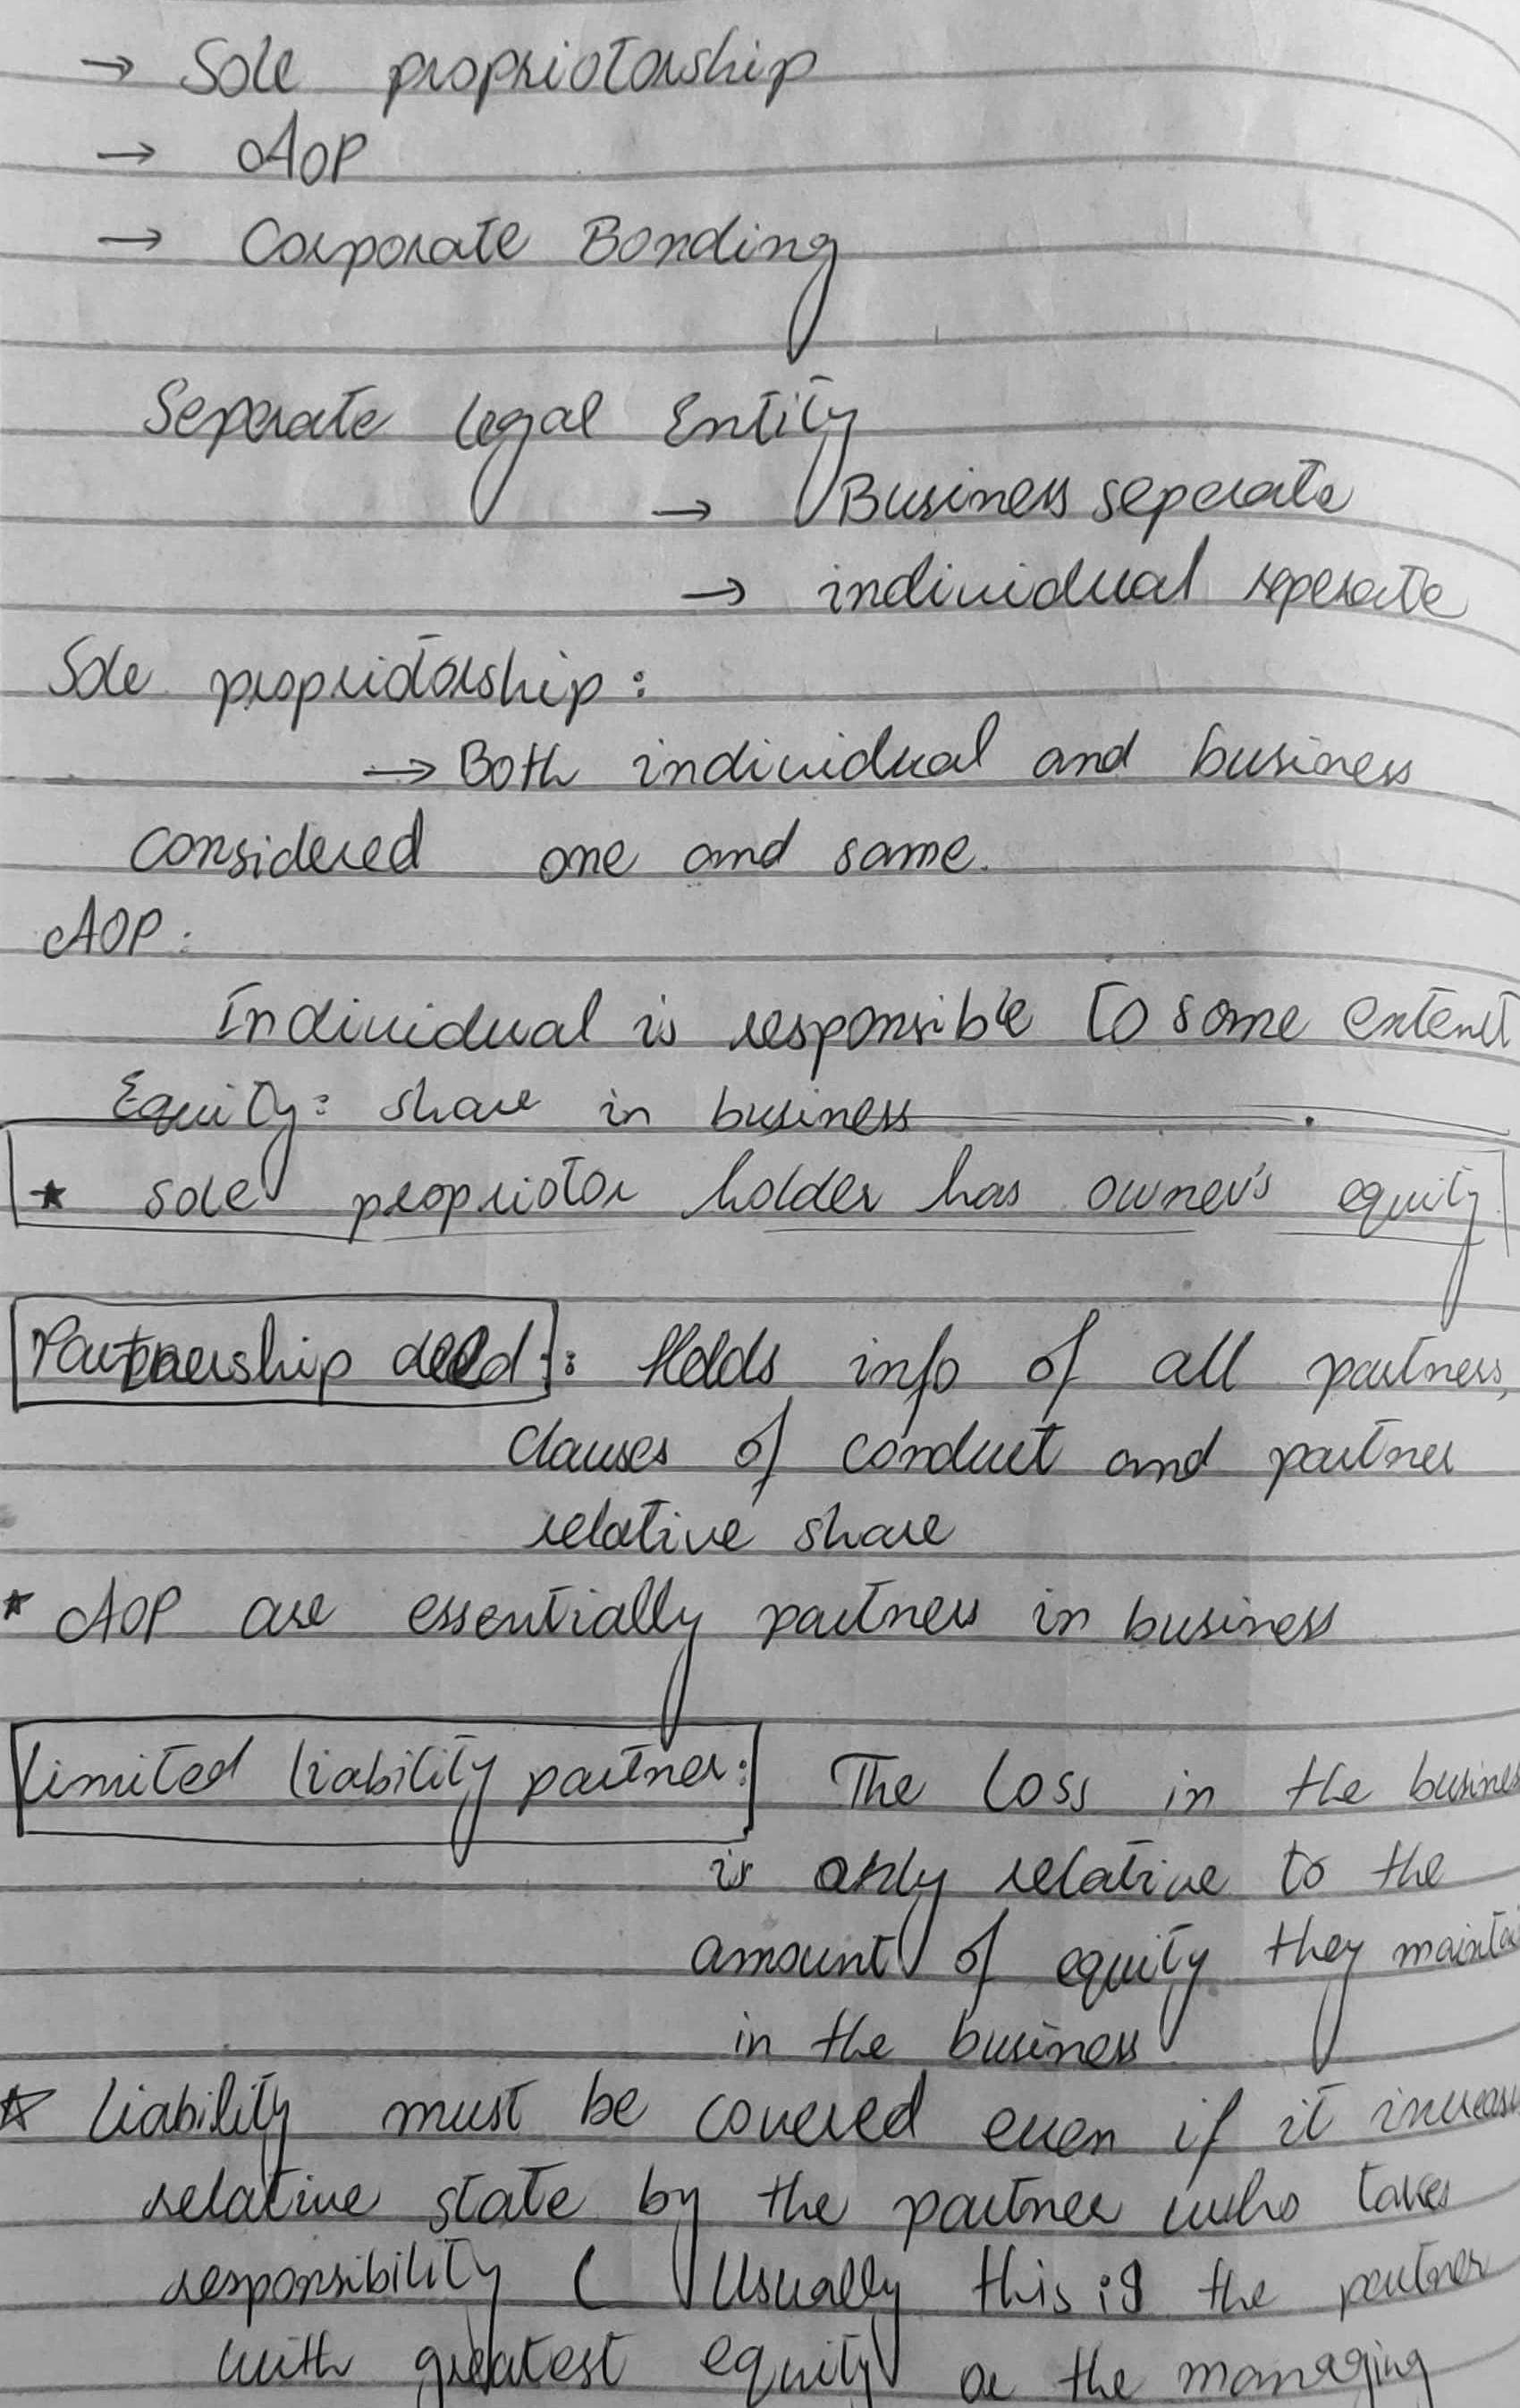 → Sole propriotorship
→ AOP
→ Corporate Bonding
Seperate legal Entity
→ Business seperate
→ individual seperate
Sole propriotorship:
→ Both individual and business
considered one and same.
AOP:
Individual is responsible to some extent
Equity: share in business
★ Sole propriotor holder has owner's equity
Partnership deed: Holds info of all partners,
clauses of conduct and partner
relative share
* AOP are essentially partners in business
Limited liability partner: The loss in the
is only relative to the
amount of equity they
in the business
☆ Liability must be covered even if it
relative state by the partner who takes
responsibility ( Usually this is the partner
with greatest equity or the managing